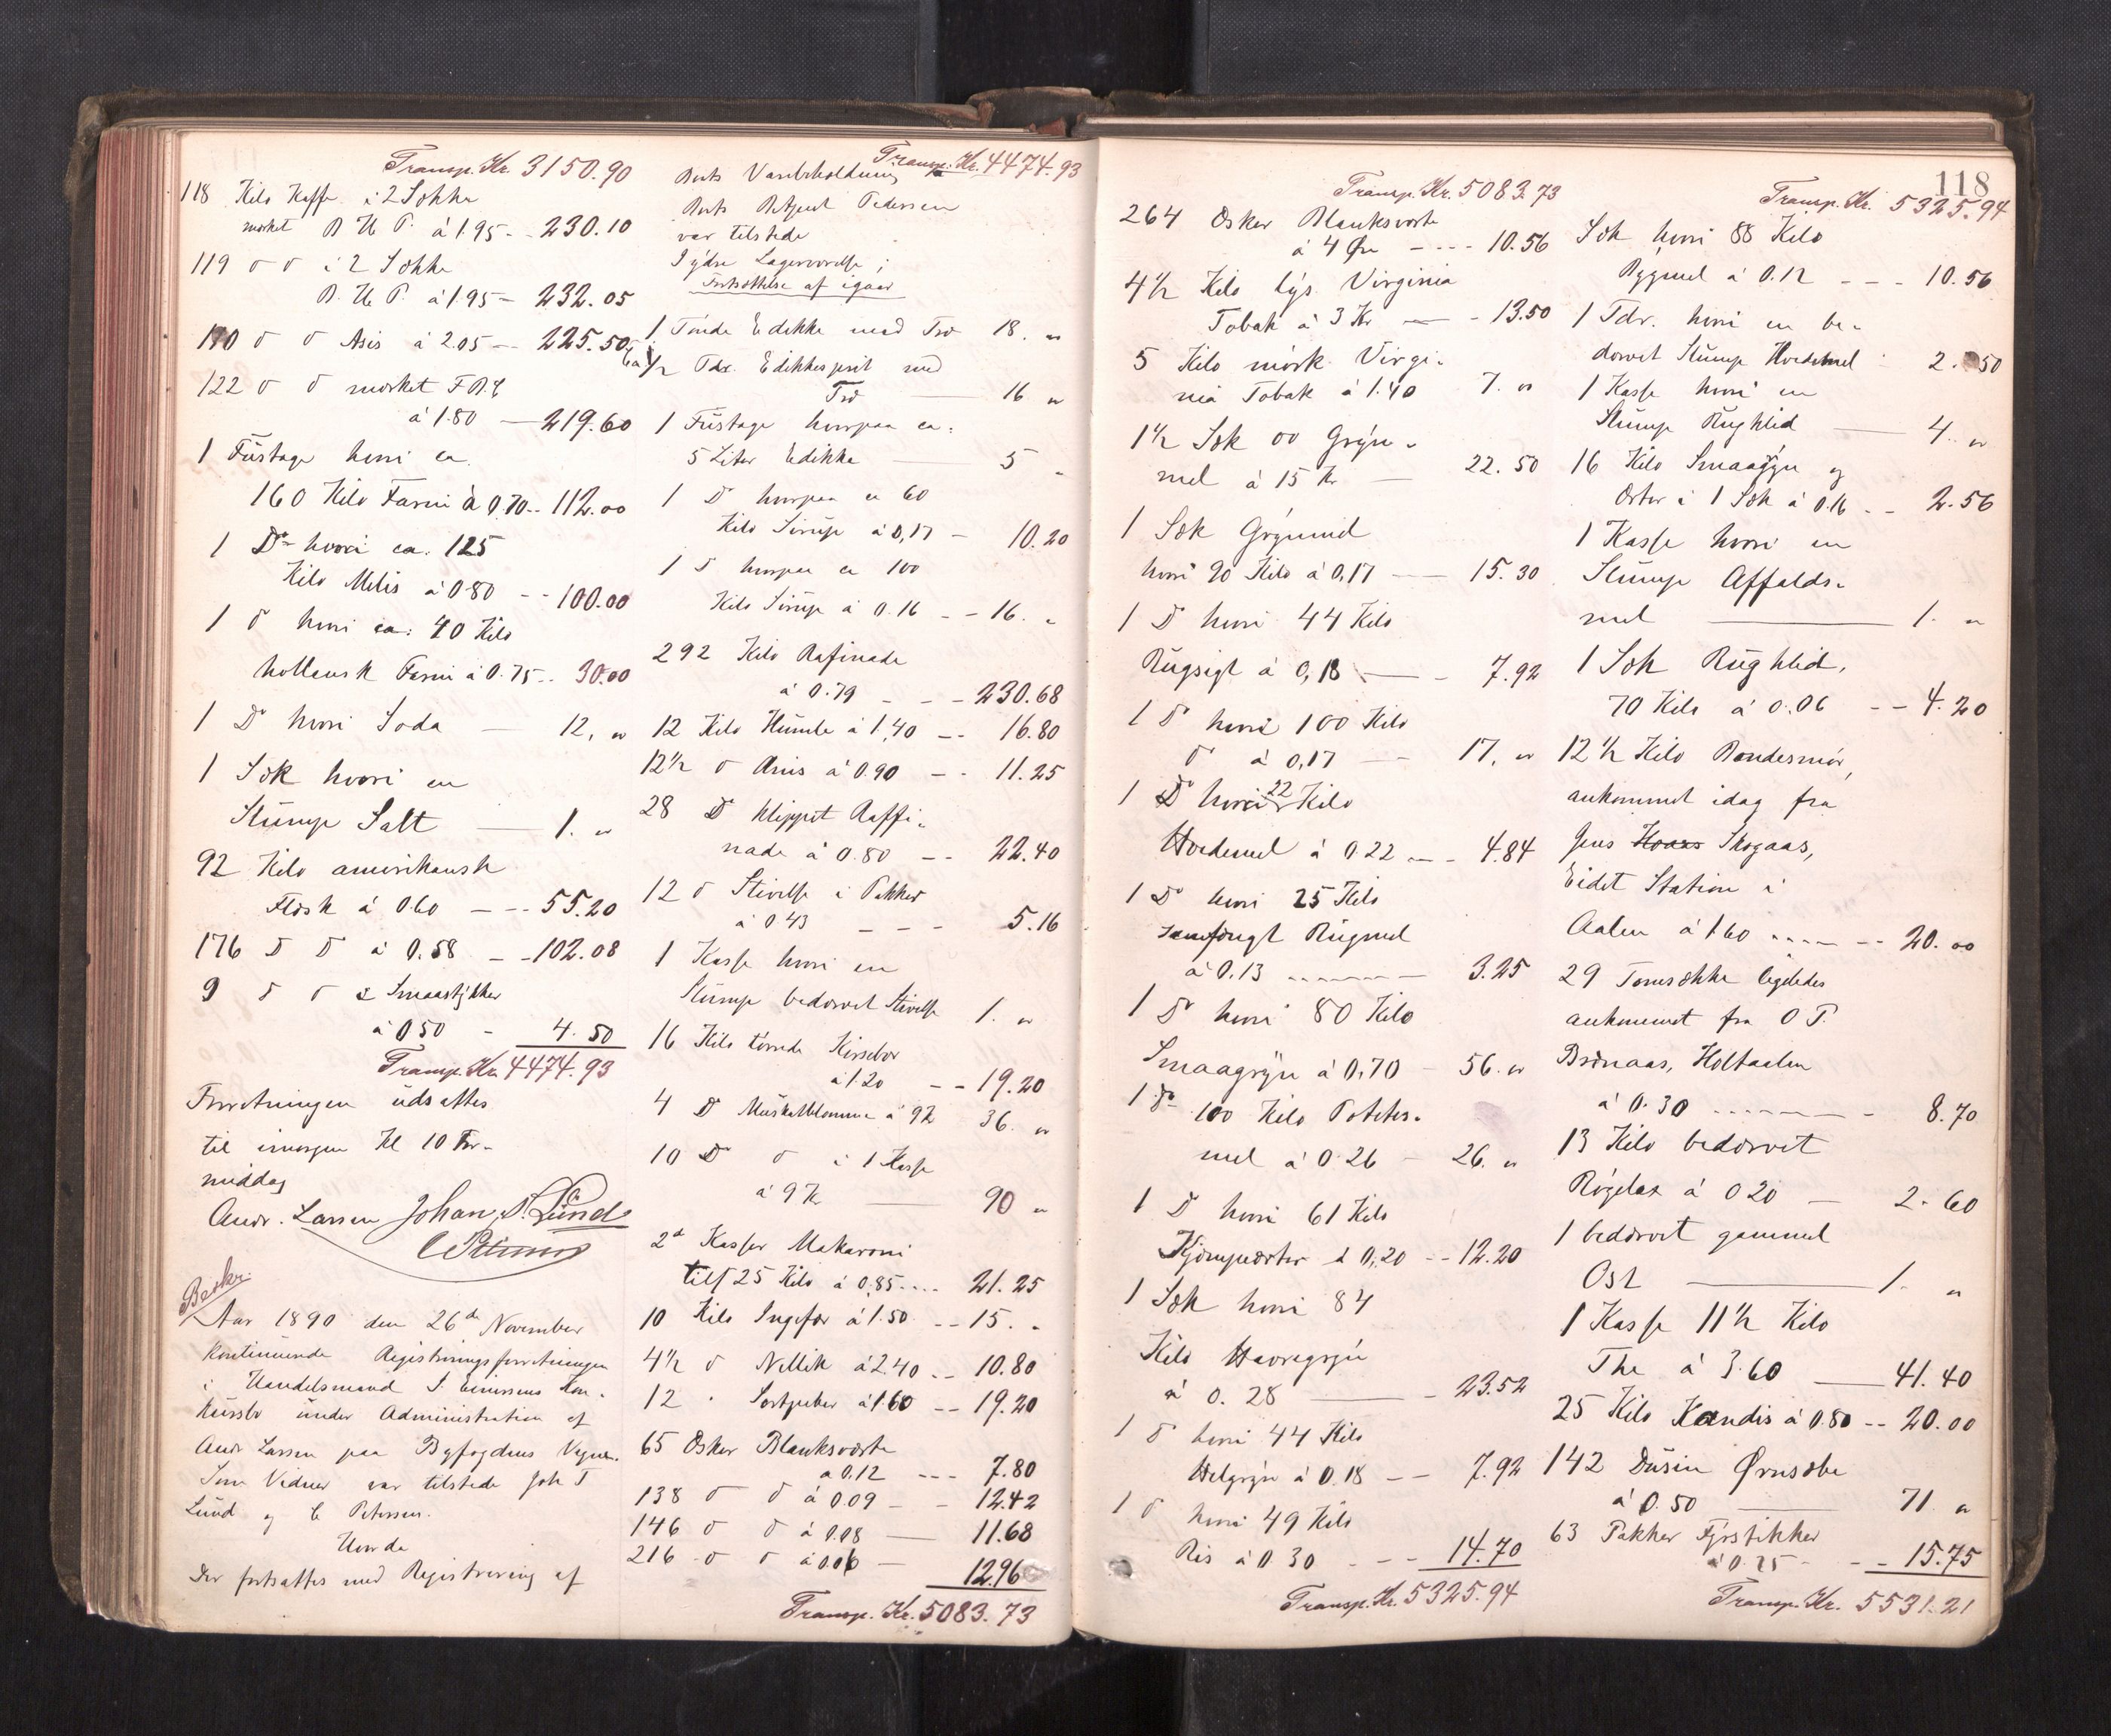 Transp. Kr. 3150.90
118 Kilo Kaffe i 2 Sække
mærket B U P. á 1.95 -- 230.10
119 do do i 2 Sække
B. U P. á 1.95 - 232.05
110 do do Asis á 2.05 -- 225.50
122 do do mærket F B. &
á 1.80 - 219.60
1 Füstage hvori ca.
160 Kilo Farin á 0.70 -- 112.00
1 Do hvori ca. 125
Kilo Melis á 0.80 -- 100.00
1 do hvori ca: 40 Kilo
hollansk Farin á 0.75 -- 30.00
1 Do hvori Soda - 12. "
1 Sæk hvori en
Slump Salt - 1. "
92 Kilo amerikansk
Flæsk á 0.60 --- 55.20
176 do do á 0.58 -- 102.08
9 do do i Smaastykker
á 0.50 - 4.50
Transp. Kr. 4474.93
Forretningen udsattes
til imorgen Kl 10 For-
middag
Andr. Larsen Johan T. Lünd
C Petersen
Aar 1890 den 26de November
kontinuerede Registreringsforretningen
i Handelsmand S. Einersens Kon-
kursbo under Administration af
Andr Larsen paa Byfogdens Vegne.
Som Vidner var tilstede Joh T
Lund og C Petersen.
Der fortsattes med Registrering af
Transp. Kr. 4474.93
Boets Varebeholdning
Boets Betjent Pedersen
var tilstede
I ydre Lagerværelse;
Fortsættelse af igaar
1 Tønde Edikke med Træ 18. "
ca 1/2 Tdr. Edikkesprit med
Træ - 16 "
1 Füstage hvorpaa ca:
5 Liter Edikke - 5 "
1 Do hvorpaa ca 60
Kilo Sirup á 0,17 - 10.20
1 do hvorpaa ca 100
Kilo Sirup á 0.16 -- 16. "
292 Kilo Rafinade
á 0.79 --- 230.68
12 Kilo Humle á 1,40 -- 16.80
12 1/2 do Anis á 0.90 -- 11.25
28 Do klippet Raffi-
nade á 0.80 -- 22.40
12 do Stivelse i Pakker
á 0 43 --- 5.16
1 Kasse hvori en
Slump bedærvet Stivelse 1. "
16 Kilo tørrede Kirsebær
á 1.20 -- 19.20
4 Do Muskatblomme á 9 Kr 36. "
10 Do do i 1 Kasse
á 9 Kr - 90 "
2 Kasser Makaroni
tils 25 Kilo á 0,85 .... 21.25
10 Kilo Ingefær á 1.50 -- 15. "
4 1/2 do Nellik á 2.40 -- 10.80
12 " Sortpeber á 1.60 -- 19.20
65 Æsker Blanksværte
á 0.12 --- 7.80
138 do do á 0.09 -- 12.42
146 do do á 0.08 - 11.68
216 do do á 0.06 - 12.96
Transp. Kr. 5083.73
118
Transp. Kr. 5083.73
264 Æsker Blanksværte
á 4 Øre ---- 10.56
4 1/2 Kilo lys Virginia
Tobak á 3 Kr -- 13.50
5 Kilo mørk Virgi-
nia Tobak á 1.40 7. "
1 1/2 Sæk 00 Gryn-
mel á 15 Kr - 22.50
1 Sæk Grynmel
hvori 90 Kilo á 0,17 - 15.30
1 Do hvori 44 Kilo
Rugsigt á 0,18 - 7.92
1 Do hvori 100 Kilo
do á 0,17 -- 17. "
1 Do hvori 22 Kilo
Hvedemel á 0 22 -- 4.84
1 Do hvori 25 Kilo
Rugmel
á 0.13 ------ 3.25
1 Do hvori 80 Kilo
Smaagryn á 0,70 - 56. "
1 Do 100 Kilo Potetes-
mel á 0.26 - 26. "
1 Do hvori 61 Kilo
Kjæmpeærter á 0,20 -- 12.20
1 Sæk hvori 84
Kilo Havregryn
á 0.28 - 23.52
1 do hvori 44 Kilo
Helgryn á 0.18 -- 7.92
1 do hvori 49 Kilo
Ris á 0 30 --- 14.70
Transp. Kr. 5325.94
Transp. Kr. 5325.94
Sæk hvori 88 Kilo
Bygmel á 0.12 --- 10.56
1 Tdr. hvori en be-
dærvet Slump Hvedemel 2.50
1 Kasse hvori en
Slump Rughlid - 4. "
16 Kilo Smaagryn og
Ærter i 1 Sæk á 0.16 -- 2.56
1 Kasse hvori en
Slump Affalds-
mel - 1. "
1 Sæk Rughlid,
70 Kilo á 0.06 -- 4.20
12 1/2 Kilo Bondesmør,
ankommet idag fra
Jens Hoaas Skogaas,
Eidet Station i
Aalen á 1 60 ------ 20.00
29 Tomsække ligeledes
ankommet fra O P.
Brönaas, Holtaalen
á 0.30 ------- 8.70
13 Kilo bedærvet
Røgelax á 0 20 - 2.60
1 bedærvet gammel
Ost - 1. "
1 Kasse 11 1/2 Kilo
The á 3.60 - 41.40
25 Kilo Kandis á 0.80 -- 20.00
142 Dusin Ørnsæbe
á 0.50 - 71 "
63 Pakker Fyrstikker
á 0.25 -- 15.75
Transp. Kr. 5531.21